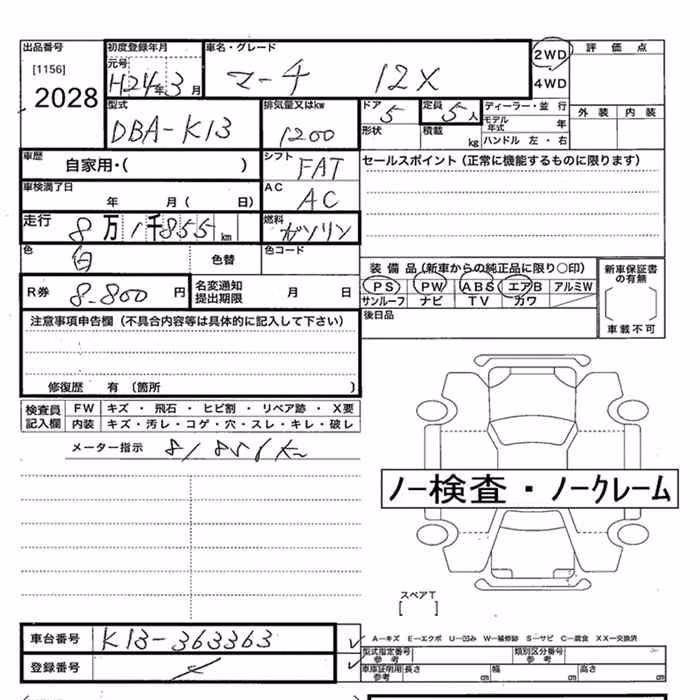 出品番号
[1156]
2028
初度登録年月
元号
H24年3月
車名・グレード
マーチ 12X
2WD
4WD
評価点
外装 内装
型式
DBA-K13
排気量又はkw
1200
ドア 5
形状
定員 5人
積載 kg
ディーラー・並行
モデル年式 年
ハンドル 左・右
車歴
自家用・( )
シフト
FAT
セールスポイント(正常に機能するものに限ります)
車検満了日
年 月( 日)
AC
AC
走行
8万1千855km
燃料
ガソリン
色
白
色替
色コード
R券 8-800円
名変通知
提出期限
月 日
装備品(新車からの純正品に限り○印)
PS PW ABS エアB アルミW
サンルーフ ナビ TV カワ
新車保証書の有無
車載不可
後日品
注意事項申告欄(不具合内容等は具体的に記入して下さい)
修復歴 有(箇所 )
検査員記入欄
FW キズ・飛石・ヒビ割・リペア跡・X要
内装 キズ・汚レ・コゲ・穴・スレ・キレ・破レ
メーター指示 81856K
ノー検査・ノークレーム
スペアT
[ ]
車台番号 K13-363363
登録番号
A-キズ E-エクボ U-凹み W-補修跡 S-サビ C-腐食 XX-交換済
型式指定番号
参考
類別区分番号
参考
車庫証明用
参考
長さ cm 幅 cm 高さ cm